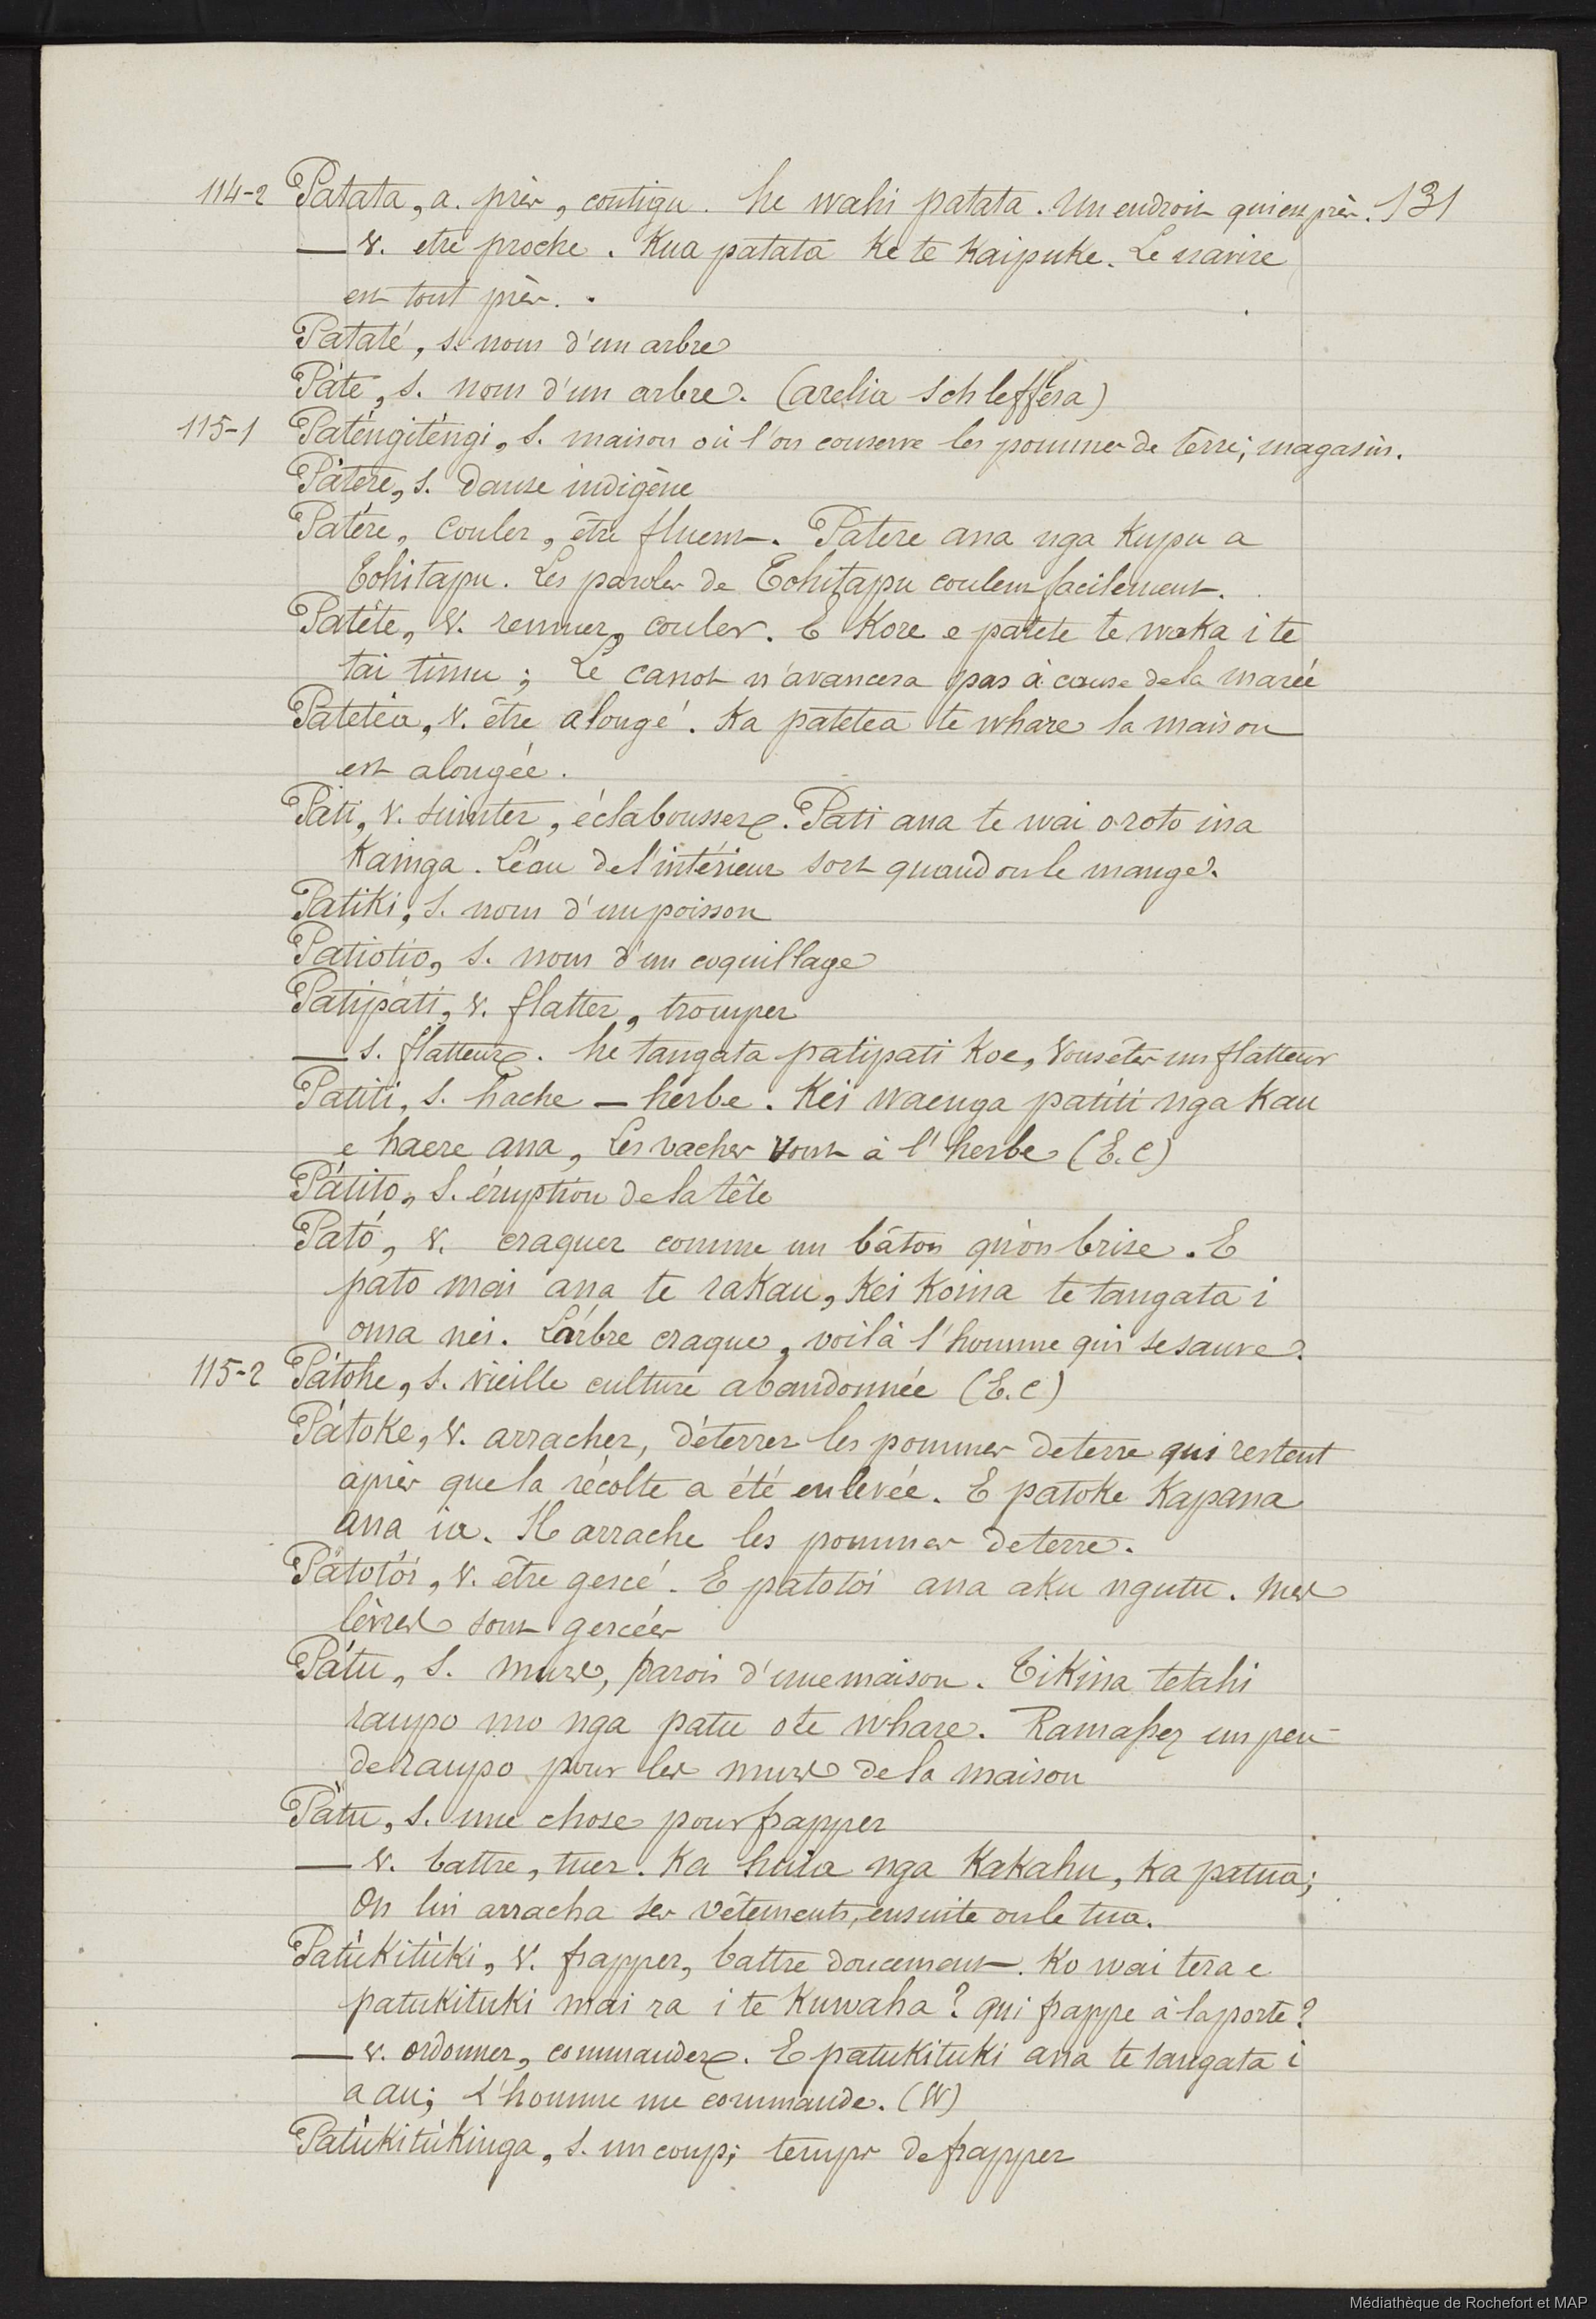 114-2 Patata, a. près, contigu. he wahi patata. Un endroit qui est près. 131
— v. etre proche. Kua patata ke te Kaipuke. Le navire
est tout près.
Pataté, s. nom d'un arbre
Páte, s. nom d'un arbre. (arelia Schleffera)
115-1 Paténgiténgi, s. maison où l'on conserve les pommes de terre; magasin.
Pátere, s. danse indigène
Patére, couler, être fluent. Patere ana nga Kupu a
Tohitapu. Les paroles de Tohitapu coulent facilement.
Patéte, v. remuer, couler. E Kore e patete te waka i te
tai timu; Le canot n'avancera pas à cause de la marée
Patetéa, v. être alongé. Ka patetea te whare la maison
est alongée.
Páti, v. suinter, éclabousser. Pati ana te wai o roto ina
Kainga. L'éau de l'intérieur sort quand on le mange.
Patiki, s. nom d'un poisson
Patiotio, s. nom d'un coquillage
Patipáti, v. flatter, tromper
— s. flatteur. he tangata patipati Koe, Vous êtes un flatteur
Patiti, s. hache — herbe. Kei waenga patiti nga Kau
e haere ana, Les vaches vont à l'herbe (E.C)
Pátito, s. éruption de la tête
Pató, v. craquer comme un bâton qu'on brise. E
pato mai ana te rakau, Kei Koina te tangata i
oma nei. L'arbre craque, voilà l'homme qui se sauve.
115-2 Pátohe, s. vieille culture abandonnée (E.C)
Pátoke, v. arracher, déterrer les pommes de terre qui restent
après que la récolte a été enlevée. E patoke Kapana
ana ia. Il arrache les pommes de terre.
Pátotói, v. être gercé. E patotoi ana aku ngutu. Mes
lèvres sont gercées
Pátu, s. murs, parois d'une maison. Tikina tetahi
raupo mo nga patu o te whare. Ramassez un peu
de raupo pour les murs de la maison
Pàtu, s. une chose pour frapper
— v. battre, tuer. Ka huia nga Kakahu, ka patua;
On lui arracha ses vêtements, ensuite on le tua.
Patúkitúki, v. frapper, battre doucement. Ko wai tera e
patukituki mai ra i te Kuwaha? qui frappe à la porte?
— v. ordonner, commander. E patukituki ana te tangata i
a au; L'homme me commande. (W)
Patúkitúkinga, s. un coup; temps de frapper
Médiathèque de Rochefort et MAP